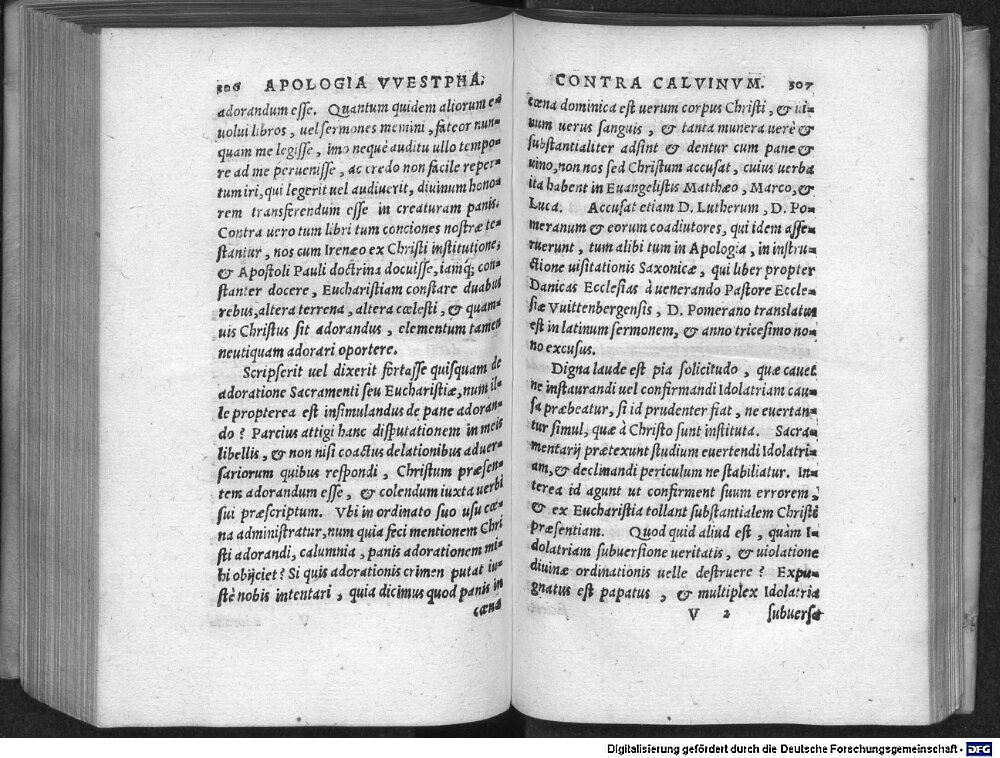 306 APOLOGIA VVESTPHA.
adorandum esse. Quantum quidem aliorum e-
uolui libros, uel sermones memini, fateor nun-
quam me legisse, imo neque auditu ullo tempo-
re ad me peruenisse, ac credo non facile reper-
tum iri, qui legerit uel audiuerit, diuinum hono-
rem transferendum esse in creaturam panis.
Contra uero tum libri tum conciones nostræ te-
stantur, nos cum Irenæo ex Christi institutione,
& Apostoli Pauli doctrina docuisse, iamq; con-
stanter docere, Eucharistiam constare duabus
rebus, altera terrena, altera cœlesti, & quam-
uis Christus sit adorandus, elementum tamen
neutiquam adorari oportere.
Scripserit uel dixerit fortasse quisquam de
adoratione Sacramenti seu Eucharistiæ, num il-
le propterea est insimulandus de pane adoran-
do? Parcius attigi hanc disputationem in meis
libellis, & non nisi coactus delationibus aduer-
sariorum quibus respondi, Christum præsen-
tem adorandum esse, & colendum iuxta uerbi
sui præscriptum. Vbi in ordinato suo usu cœ-
na administratur, num quia feci mentionem Chri
sti adorandi, calumnia, panis adorationem mi-
hi obijciet? Si quis adorationis crimen putat iu-
stè nobis intentari, quia dicimus quod panis in
cœna
CONTRA CALVINVM. 307
cœna dominica est uerum corpus Christi, & ui-
num uerus sanguis, & tanta munera uerè &
substantialiter adsint & dentur cum pane &
uino, non nos sed Christum accusat, cuius uerba
ita habent in Euangelistis Matthæo, Marco, &
Luca. Accusat etiam D. Lutherum, D. Po-
meranum & eorum coadiutores, qui idem asse-
ruerunt, tum alibi tum in Apologia, in instru-
ctione uisitationis Saxonicæ, qui liber propter
Danicas Ecclesias à uenerando Pastore Eccle-
siæ Vuittenbergensis, D. Pomerano translatus
est in latinum sermonem, & anno tricesimo no-
no excusus.
Digna laude est pia solicitudo, quæ cauet
ne instaurandi uel confirmandi Idolatriam cau-
sa præbeatur, si id prudenter fiat, ne euertan-
tur simul, quæ à Christo sunt instituta. Sacra-
mentarij prætexunt studium euertendi Idolatri-
am, & declinandi periculum ne stabiliatur. In-
terea id agunt ut confirment suum errorem,
& ex Eucharistia tollant substantialem Christi
præsentiam. Quod quid aliud est, quàm I-
dolatriam subuersione ueritatis, & uiolatione
diuinæ ordinationis uelle destruere? Expu-
gnatus est papatus, & multiplex Idolatria
V 2 subuersa
Digitalisierung gefördert durch die Deutsche Forschungsgemeinschaft - DFG